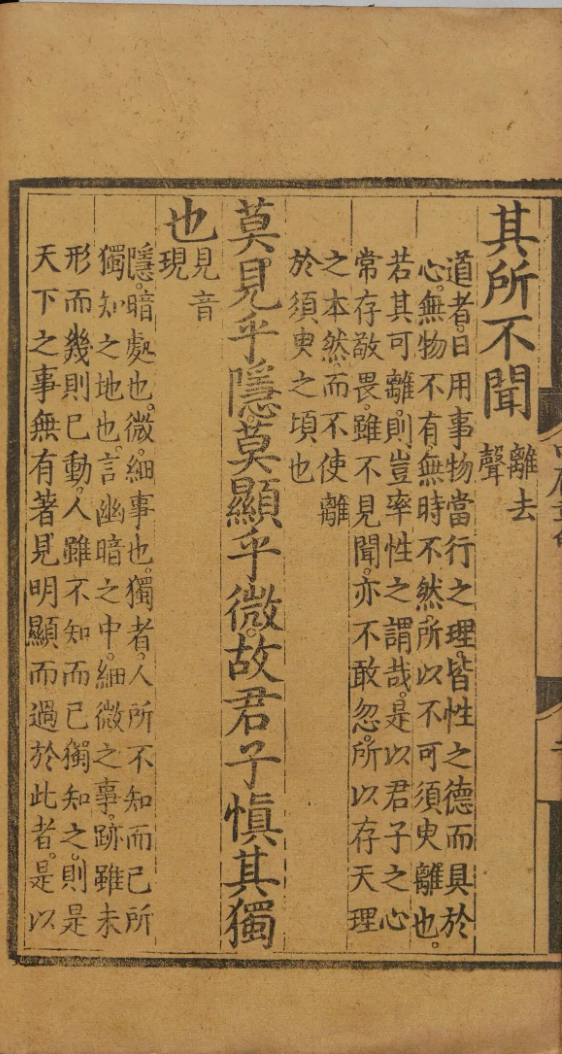 其所不聞
離去
聲
道者。日用事物當行之理。皆性之德而具於
心。無物不有。無時不然。所以不可須臾離也。
若其可離。則豈率性之謂哉。是以君子之心
常存敬畏。雖不見聞。亦不敢忽。所以存天理
之本然而不使離
於須臾之頃也
莫見乎隱。莫顯乎微。故君子愼其獨
也
見音
現
隱。暗處也。微。細事也。獨者。人所不知而己所
獨知之地也。言幽暗之中。細微之事。跡雖未
形而幾則已動。人雖不知而己獨知之。則是
天下之事無有著見明顯而過於此者。是以